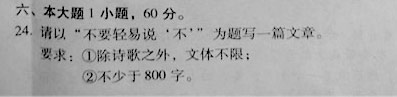 六、本大题 1 小题，60 分。
24. 请以“不要轻易说‘不’”为题写一篇文章。
要求：①除诗歌之外，文体不限；
②不少于 800 字。